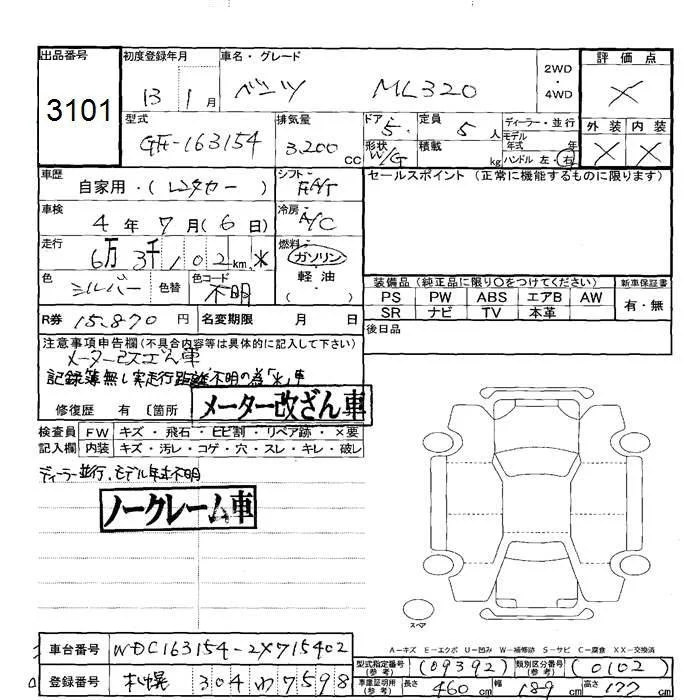 出品番号 初度登録年月 車名・グレード 2WD・4WD 評価点
3101 13 1月 ベンツ ML320 ×
型式 排気量 ドア 定員 ディーラー・並行 外装 内装
GF-163154 3,200cc 5 5人 モデル年式 年 × ×
形状 W/G 積載 kg ハンドル 左・右
車歴 自家用・(レンタカー) シフト FAT セールスポイント(正常に機能するものに限ります)
車検 4年7月(6日) 冷房 A/C
走行 6万3千102km * 燃料 ガソリン・軽油・( )
色 シルバー 色替 色コード 不明
装備品(純正品に限り○をつけてください) 新車保証書
PS PW ABS エアB AW 有・無
SR ナビ TV 本革
R券 15,870円 名変期限 月 日 後日品
注意事項申告欄(不具合内容等は具体的に記入して下さい)
メーター改ざん車
記録簿無し実走行距離不明の為「*」車
修復歴 有 〔箇所 メーター改ざん車
検査員 FW キズ・飛石・ヒビ割・リペア跡・×要
記入欄 内装 キズ・汚レ・コゲ・穴・スレ・キレ・破レ
ディーラー並行、モデル年式不明
ノークレーム車
スペア
A-キズ E-エクボ U-凹み W-補修跡 S-サビ C-腐食 XX-交換済
車台番号 WDC163154-2X715402 型式指定番号(参考) (09392) 類別区分番号(参考) (0102)
登録番号 札幌 304 わ 7598 車庫証明用(参考) 長さ 460cm 幅 189cm 高さ 177cm